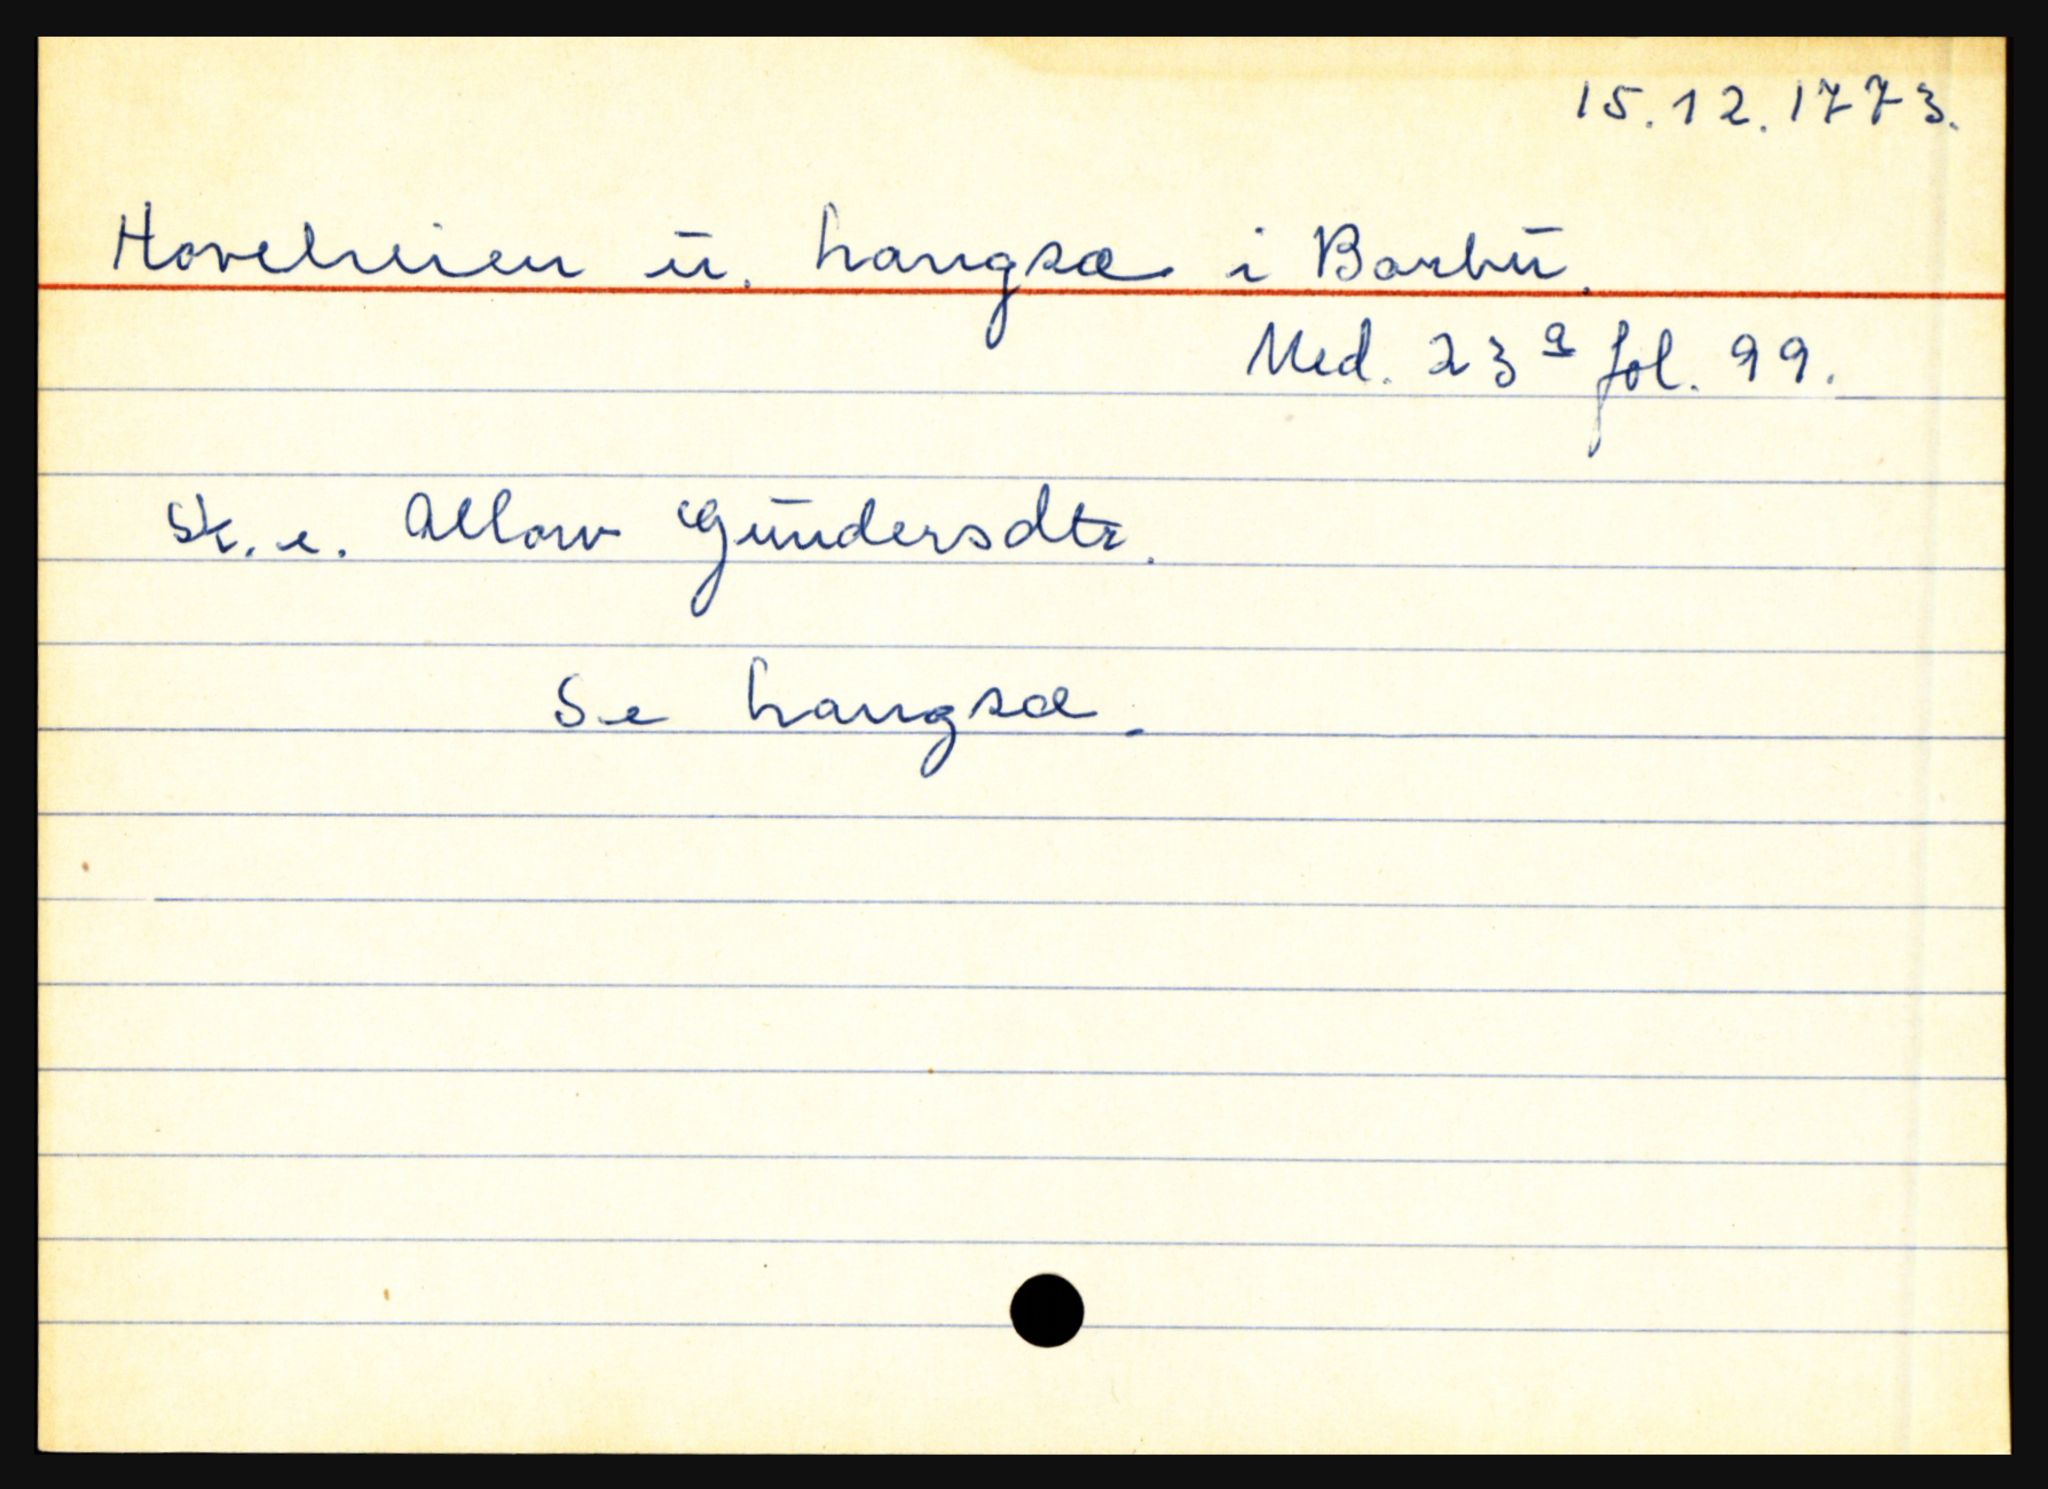 15.12.1773.
Hovelheien u. Langsæ i Barbu.
Ned. 23 a fol. 99.
Sk. e. Allow Gundersdtr.
Se Langsæ.